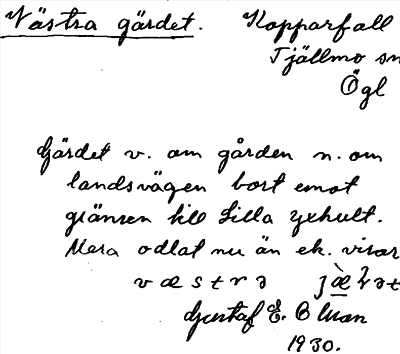 Västra gärdet. Kopparfall
Tjällmo sn
Ögl
Gärdet v. om gården n. om
landsvägen bort emot
gränsen till Lilla
Mera odlat nu än ek. visar
västrə
Gustaf E.
1930.